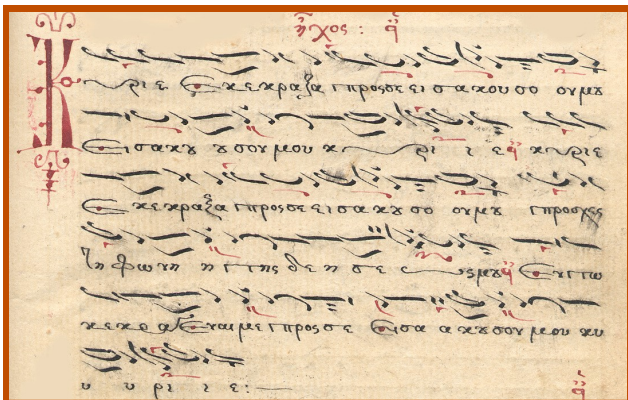 ἦχος : ᾱ
Κυριε Εκεκραξα προςσε εισακουσο ουμȣ
Εισακȣ ȣσουμου κυ ρι ι ε κυριε
Εκεκραξα προςσε εισακȣσο ουμȣ προσχες
τη φωνη η της δεησε ωςμȣ Εντω
κεκραγεναιμε προςσε Εισα ακȣσουμου κυ
υ υ ρι ι ε :